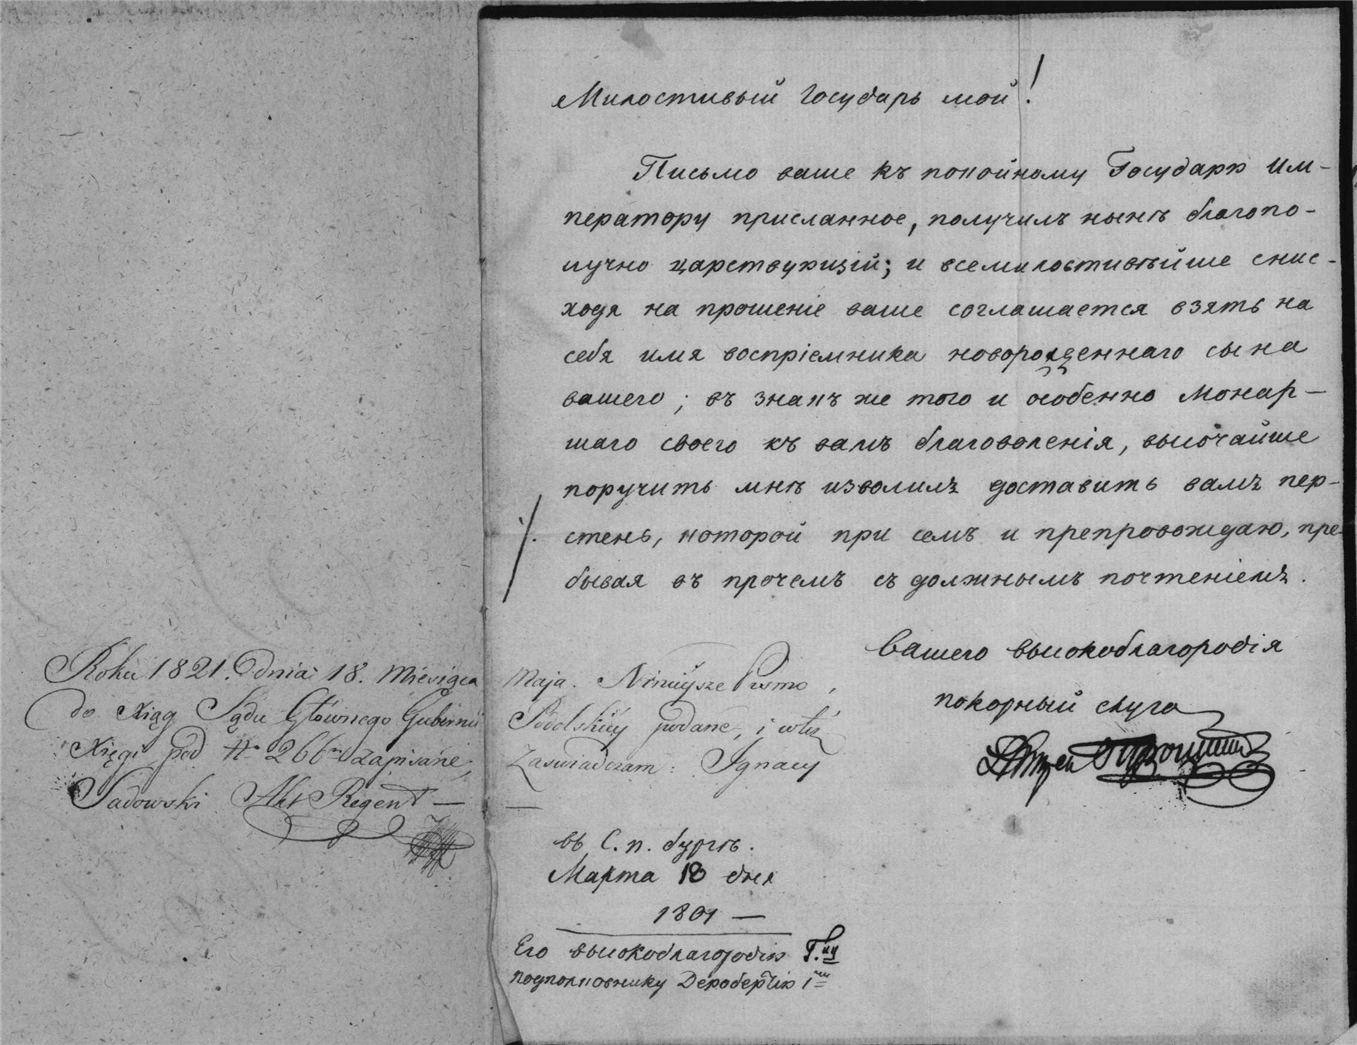 Милостивый Государь мой!
Письмо ваше къ покойному Государю Им-
ператору присланное, получилъ нынѣ благопо-
лучно царствующій; и всемилостивѣйше снис-
ходя на прошеніе ваше соглашается взять на
себя имя воспріемника новорожденнаго сына
вашего; въ знакъ же того и особенно Монар-
шаго своего къ вамъ благоволенія, высочайше
поручить мнѣ изволилъ доставить вамъ пер-
стень, которой при семъ и препровождаю, пре-
бывая въ прочемъ съ должнымъ почтеніемъ.
Вашего высокоблагородія
покорный слуга
Roku 1821. Dnia 18. Miesiąca Maja. Ninieysze Pismo,
do Xiąg Sądu Głównego Gubernii Podolskiey podane, i w
Xięgi pod Nr 266 zapisane, Zaswiadczam: Ignacy
Sadowski Akt Regent —
въ С. п. бургѣ.
Марта 18 дня
1801 —
Его высокоблагородію Г.ну
подполковнику Деробертію 1